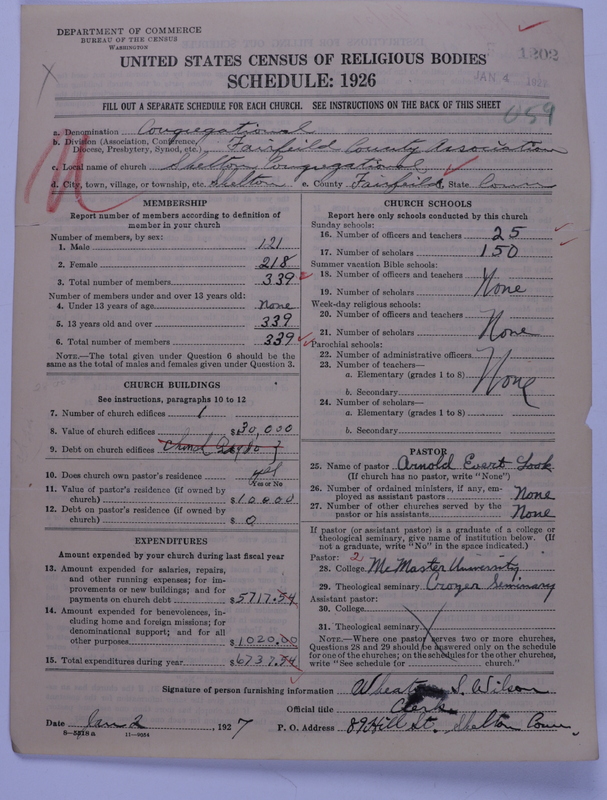 DEPARTMENT OF COMMERCE
BUREAU OF THE CENSUS
WASHINGTON
1202
JAN 4 1927
UNITED STATES CENSUS OF RELIGIOUS BODIES
SCHEDULE: 1926
FILL OUT A SEPARATE SCHEDULE FOR EACH CHURCH. SEE INSTRUCTIONS ON THE BACK OF THIS SHEET
059
a. Denomination Congregational
b. Division (Association, Conference, Diocese, Presbytery, Synod, etc.) Fairfeild County Association
c. Local name of church Shelton Congregational
d. City, town, village, or township, etc. Shelton e. County Fairfeild, State Conn
MEMBERSHIP
Report number of members according to definition of
member in your church
Number of members, by sex:
1. Male 121
2. Female 218
3. Total number of members 339
Number of members under and over 13 years old:
4. Under 13 years of age None
5. 13 years old and over 339
6. Total number of members 339
NOTE.—The total given under Question 6 should be the
same as the total of males and females given under Question 3.
CHURCH BUILDINGS
See instructions, paragraphs 10 to 12
7. Number of church edifices 1
8. Value of church edifices $30,000
9. Debt on church edifices
10. Does church own pastor's residence yes
(Yes or No)
11. Value of pastor's residence (if owned by
church) $10,000
12. Debt on pastor's residence (if owned by
church) $ 0
EXPENDITURES
Amount expended by your church during last fiscal year
13. Amount expended for salaries, repairs,
and other running expenses; for im-
provements or new buildings; and for
payments on church debt $5717.54
14. Amount expended for benevolences, in-
cluding home and foreign missions; for
denominational support; and for all
other purposes $1020.00
15. Total expenditures during year $6737.54
CHURCH SCHOOLS
Report here only schools conducted by this church
Sunday schools:
16. Number of officers and teachers 25
17. Number of scholars 150
Summer vacation Bible schools:
18. Number of officers and teachers
19. Number of scholars None
Week-day religious schools:
20. Number of officers and teachers
21. Number of scholars None
Parochial schools:
22. Number of administrative officers
23. Number of teachers—
a. Elementary (grades 1 to 8) None
b. Secondary
24. Number of scholars—
a. Elementary (grades 1 to 8)
b. Secondary
PASTOR
25. Name of pastor Arnold Evert Look
(If church has no pastor, write "None")
26. Number of ordained ministers, if any, em-
ployed as assistant pastors None
27. Number of other churches served by the
pastor or his assistants None
If pastor (or assistant pastor) is a graduate of a college or
theological seminary, give name of institution below. (If
not a graduate, write "No" in the space indicated.)
Pastor: 2
28. College McMaster University
29. Theological seminary Crozer Seminary
Assistant pastor:
30. College
31. Theological seminary
NOTE.—Where one pastor serves two or more churches,
Questions 28 and 29 should be answered only on the schedule
for one of the churches; on the schedules for the other churches,
write "See schedule for church."
Signature of person furnishing information Wheaton S. Wilson
Official title Clerk
Date Jan 2, 1927 P. O. Address 89 Hill St. Shelton Conn
8—5518 a 11—9054